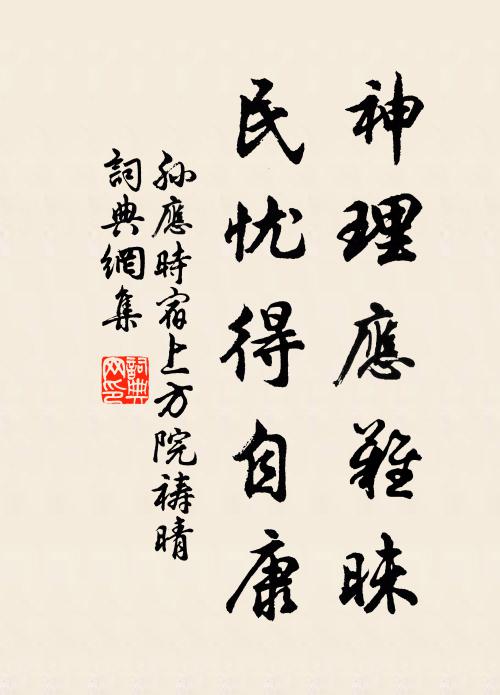 神理應難昧
民忧得自康
孙應時宿上方院禱晴
詞典網集
詞典
网印